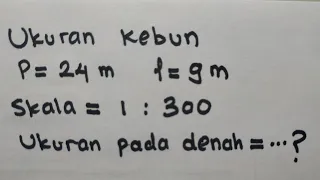 Ukuran Kebun
P = 24 m l = 9 m
Skala = 1 : 300
Ukuran pada denah = ...?